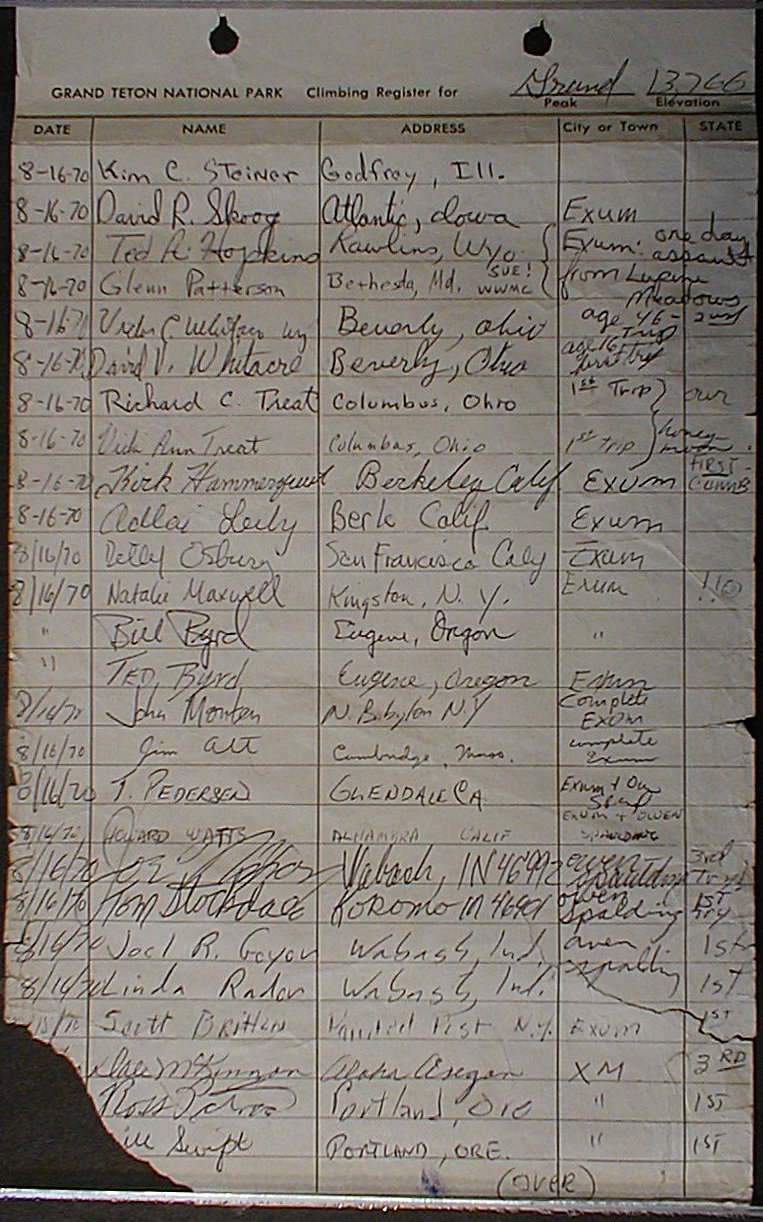 GRAND TETON NATIONAL PARK Climbing Register for Grand 13,766
Peak Elevation
DATE NAME ADDRESS City or Town STATE
8-16-70 Kim C. Steiner Godfrey, Ill.
8-16-70 David R. Skoog Atlantic, Iowa Exum
8-16-70 Ted R. Hopkins Rawlins, Wyo. Exum: one day assault
8-16-70 Glenn Patterson Bethesda, Md. SUE! WWMC from Lupine Meadows
8-16-70 Beverly, Ohio age 46 - 2nd Trip
8-16-70 David V. Whitacre Beverly, Ohio age 16 first trip
8-16-70 Richard C. Treat Columbus, Ohio 1st Trip } our
8-16-70 Vicki Ann Treat Columbus, Ohio 1st trip } honeymoon.
8-16-70 Kirk Hammerquist Berkeley Calif EXUM FIRST CLIMB
8-16-70 Berk Calif. Exum
8/16/70 Osburn San Francisco Calif Exum
8/16/70 Natalie Maxwell Kingston, N. Y. Exum
" Bill Byrd Eugene, Oregon "
" TED Byrd Eugene, Oregon Exum
8/16/70 John Monten N. Babylon NY Complete Exum
8/16/70 Jim Alt Cambridge, Mass. complete Exum
8/16/70 T. PEDERSEN GLENDALE CA Exum + Ow Spald
8/16/70 HOWARD WATTS ALHAMBRA CALIF EXUM + OWEN SPAULDING
8/16/70 Joe Wabash, IN 46992 owen Spaulding 3rd Try
8/16/70 Tom Stockdale KOKOMO IN 46901 owen Spalding 1st try
8/16/70 Joel R. Guyon Wabash, Ind. owen spalding 1st
8/16/70 Linda Rador Wabash, Ind. 1st
Scott Britten Painted Post N.Y. EXUM 1st
McKinnon Aloha Oregon XM 3RD
Ross Portland, Ore " 1ST
Swift PORTLAND, ORE. " 1ST
(OVER)